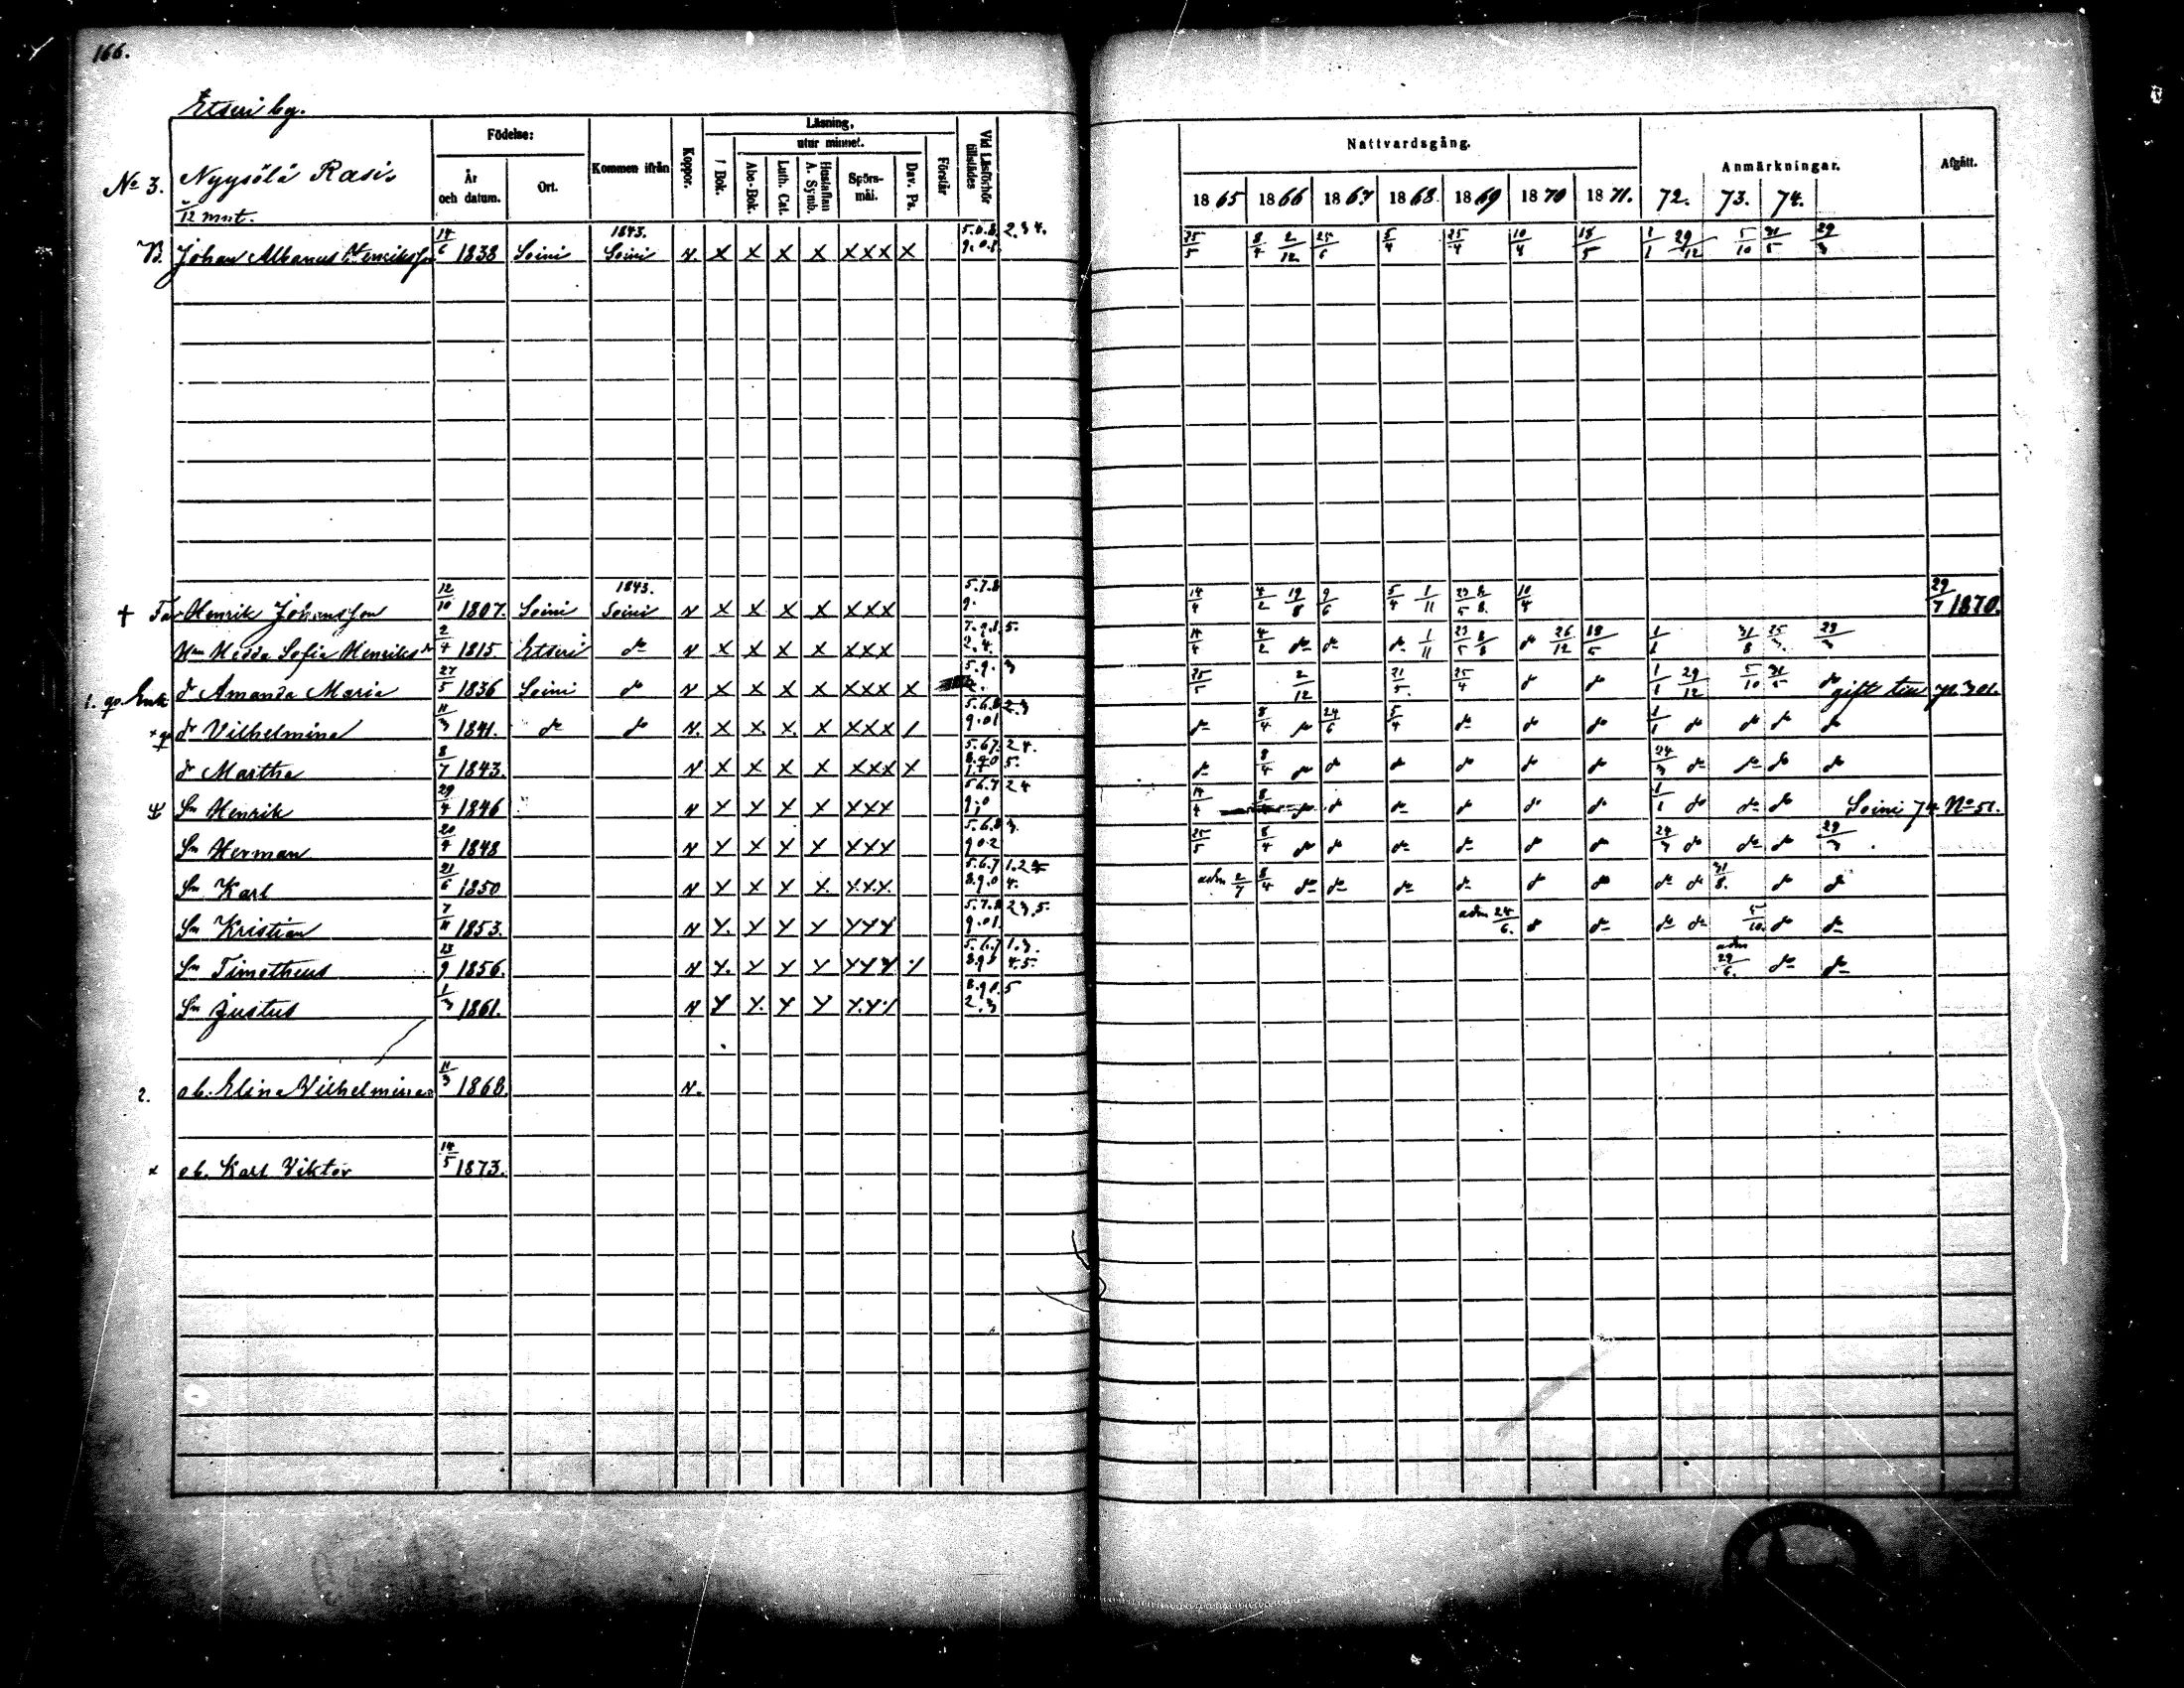 166.
Etseri by.
No 3. Nyysölä Rasi.
5/12 mnt.
Födelse: År och datum. Ort. Kommen ifrån Koppor. Läsning, utur minnet. I Bok. Abc-Bok. Luth. Cat. Hustaflan A. Symb. Spörsmål. Dav. Ps. Förstår Vid Läsförhör tillstädes
Nattvardsgång. Anmärkningar. Afgått.
1865 1866 1867 1868 1869 1870 1871. 72. 73. 74.
B. Johan Albanus Henriksson 14/6 1838 Soini 1843. Soini v. x x x x xxx x 5.6.8. 9.0.1. 2.3 4. 25/5 8/4 2/12 25/6 5/4 25/4 10/4 18/5 1/1 29/12 5/10 31/5 29/3
† Far Henrik Johansson 12/10 1807. Soini 1843. Soini v x x x x xxx 5.7.8 9. 14/4 4/2 19/8 9/6 5/4 1/11 23/5 8/8. 10/4 29/7 1870.
Hm Hedda Sofia Henriksdr 2/4 1815. Etseri do v x x x x xxx 7.9.1. 5. 2.4. 14/4 4/2 do do do 1/11 23/5 8/8 do 26/12 18/5 1/1 31/8 25/3 29/3
1. qv. Enk dr Amanda Maria 27/5 1836 Soini do v x x x x xxx x 5.9. 3 25/5 2/12 31/5. 25/4 do do 1/1 29/12 5/10 31/5 do gift till
× qv dr Vilhelmina 11/3 1841. do do v. x x. x. x xxx / 5.6.8 2.3 9.01 do 8/4 do 24/6 5/4 do do do 1/1 do do do do
dr Martha 8/7 1843. v x x x x xxx x 5.6.7. 2 4. 8.9.0 5. do 8/4 do do do do do do 24/3 do do do do
Sn Henrik 29/4 1846 v x x x x xxx 5.6.7 2 4 9.0 14/4 8/4 do do do do do do 1/1 do do do Soini 74 No 51.
Sn Herman 20/4 1848 v x x x x xxx 5.6.8 3. 9 0.2 25/5 8/4 do do do do do do 24/3 do do do 29/3
Sn Karl 21/6 1850 v x x x x. x.x.x. 5.6.7 1.2 8.9.0 4. adm 2/7 8/4 do do do do do do do do 31/8. do do
Sn Kristian 7/11 1853. v x. x x x xxx 5.7.8 2 3,5. 9.01. adm 24/6. do do do do 5/10. do do
Sn Timotheus 23/9 1856. v x. x x x xxx / 5.6.7 1.3. 4.5. adm 29/6. do do
Sn Justus 1/3 1861. v x x. x x x.x/ 8.9.0. 5 2.3
2. o.b. Elina Vilhelmina 11/3 1868. v.
x o.b. Karl Viktor 14/5 1873.